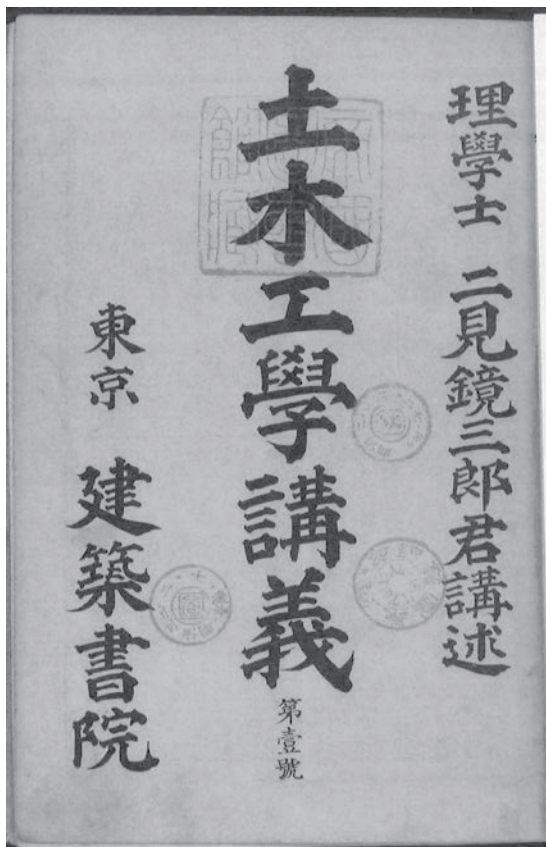 理學士 二見鏡三郎君講述
土木工學講義
第壹號
東京 建築書院